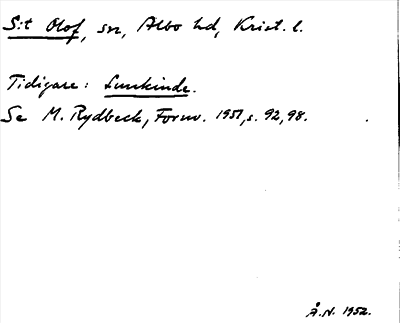 S:t Olof, sn, Albo hd, Krist. l.
Tidigare: Lunkinde.
Se M. Rydbeck, Fornv. 1951, s. 92, 98.
Å.N. 1952.